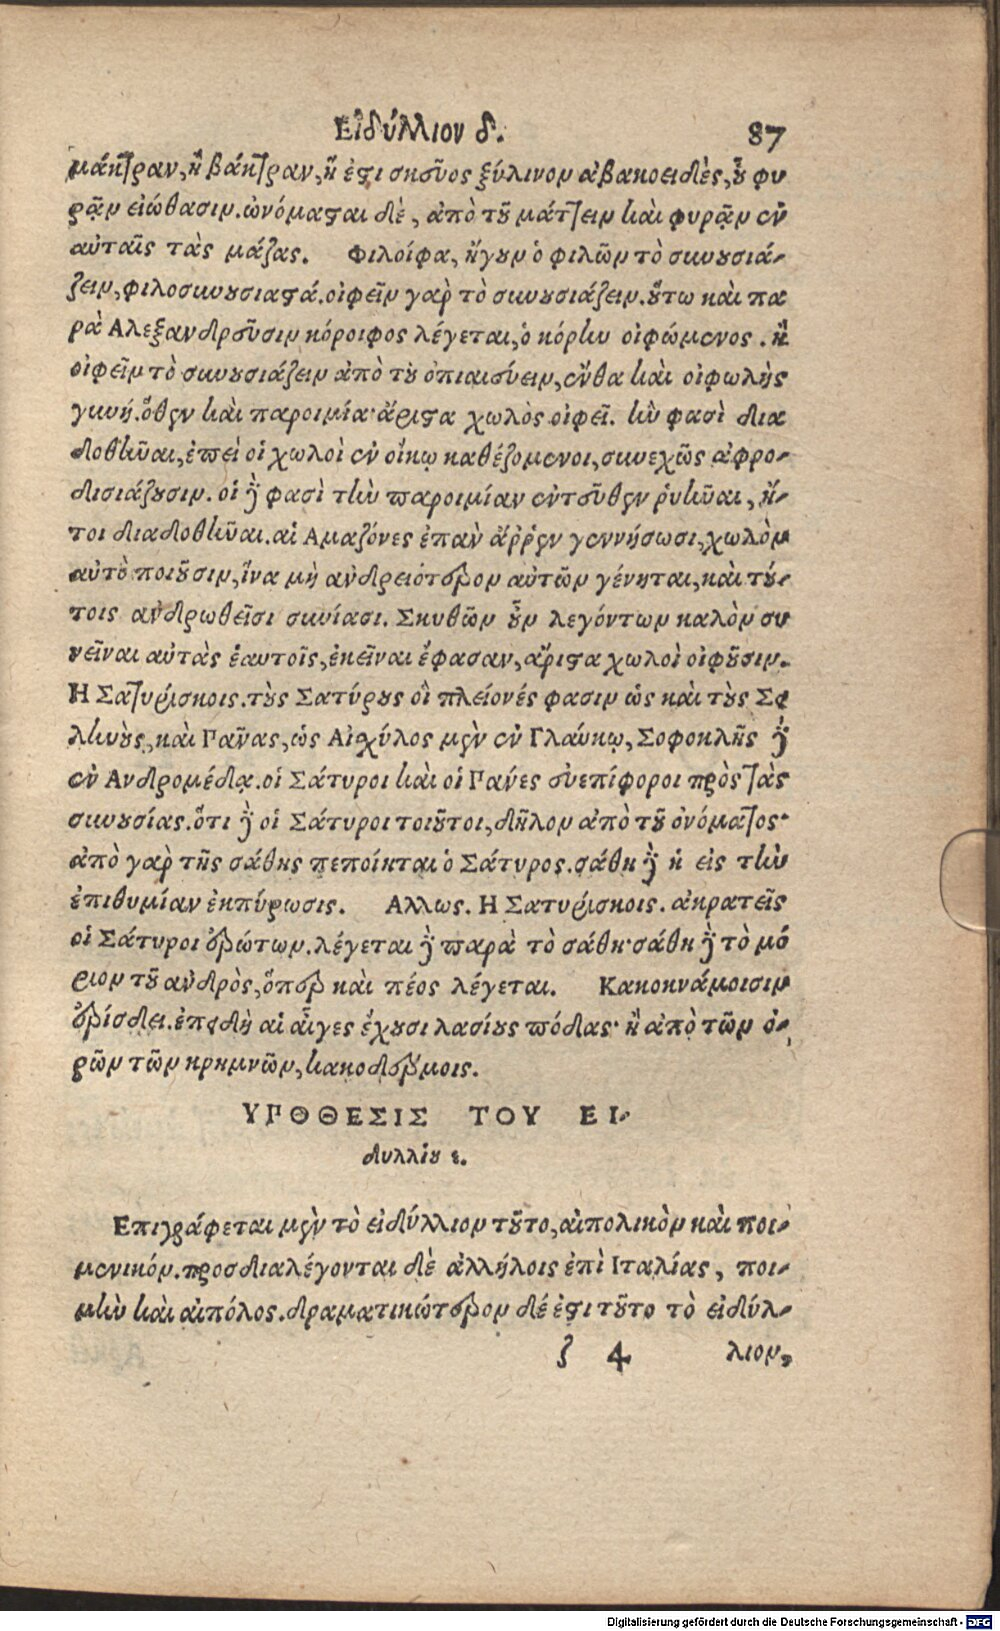 Εἰδύλλιον δ. 87
μάκτραν, ἢ βάκτραν, ἥ ἐστι σκεῦος ξύλινον ἀβακοειδὲς, οὗ φυ
ρᾷν εἰώθασιν. ὠνόμασαι δὲ, ἀπὸ τοῦ μάττειν καὶ φυρᾷν ἐν
αὐταῖς τὰς μάζας. Φιλοίφα, ἤγουν ὁ φιλῶν τὸ συνουσιά-
ζειν, φιλοσυνουσιαστά. οἰφεῖν γὰρ τὸ συνουσιάζειν. οὕτω καὶ πα
ρὰ Αλεξανδρεῦσιν κόροιφος λέγεται, ὁ κόρην οἰφώμενος. ἢ
οἰφεῖν τὸ συνουσιάζειν ἀπὸ τοῦ ὀπιαιεύειν, ἔνθα καὶ οἰφωλὴς
γυνή. ὅθεν καὶ παροιμία· ἄριστα χωλὸς οἰφεῖ. ἣν φασὶ δια
δοθῆναι, ἐπεὶ οἱ χωλοὶ ἐν οἴκῳ καθεζόμενοι, συνεχῶς ἀφρο-
δισιάζουσιν. οἱ δὲ φασὶ τὴν παροιμίαν ἐντεῦθεν ῥυῆναι, ἤ-
τοι διαδοθῆναι. αἱ Αμαζόνες ἐπὰν ἄῤῥεν γεννήσωσι, χωλὸν
αὐτὸ ποιοῦσιν, ἵνα μὴ ἀνδρειότερον αὐτῶν γένηται, καὶ τού-
τοις ἀνδρωθεῖσι συνίασι. Σκυθῶν οὖν λεγόντων καλὸν συ
νεῖναι αὐτὰς ἑαυτοῖς, ἐκεῖναι ἔφασαν, ἄριστα χωλοὶ οἰφοῦσιν.
Η Σατυρίσκοις. τοὺς Σατύρους οἱ πλείονές φασιν ὡς καὶ τοὺς Σε
ληνοὺς, καὶ Πᾶνας, ὡς Αἰσχύλος μὲν ἐν Γλαύκῳ, Σοφοκλῆς δὲ
ἐν Ανδρομέδᾳ. οἱ Σάτυροι καὶ οἱ Πάνες εὐεπίφοροι πρὸς τὰς
συνουσίας. ὅτι δὲ οἱ Σάτυροι τοιοῦτοι, δῆλον ἀπὸ τοῦ ὀνόματος·
ἀπὸ γὰρ τῆς σάθης πεποίηται ὁ Σάτυρος. σάθη δὲ ἡ εἰς τὴν
ἐπιθυμίαν ἐκπύρωσις. Αλλως. Η Σατυρίσκοις. ἀκρατεῖς
οἱ Σάτυροι ἐρώτων. λέγεται δὲ παρὰ τὸ σάθη· σάθη δὲ τὸ μό
ριον τοῦ ἀνδρὸς, ὅπερ καὶ πέος λέγεται. Κακοκνάμοισιν
ἐρίσδει. ἐπειδὴ αἱ αἶγες ἔχουσι λασίους πόδας· ἢ ἀπὸ τῶν ὀ-
ρῶν τῶν κρημνῶν, κακοδρύμοις.
ΥΠΟΘΕΣΙΣ ΤΟΥ ΕΙ-
δυλλίου ε.
Επιγράφεται μὲν τὸ εἰδύλλιον τοῦτο, αἰπολικὸν καὶ ποι-
μενικόν. προσδιαλέγονται δὲ ἀλλήλοις ἐπὶ Ιταλίας, ποι-
μὴν καὶ αἰπόλος. δραματικώτερον δέ ἐστι τοῦτο τὸ εἰδύλ-
ζ 4 λιον,
Digitalisierung gefördert durch die Deutsche Forschungsgemeinschaft - DFG